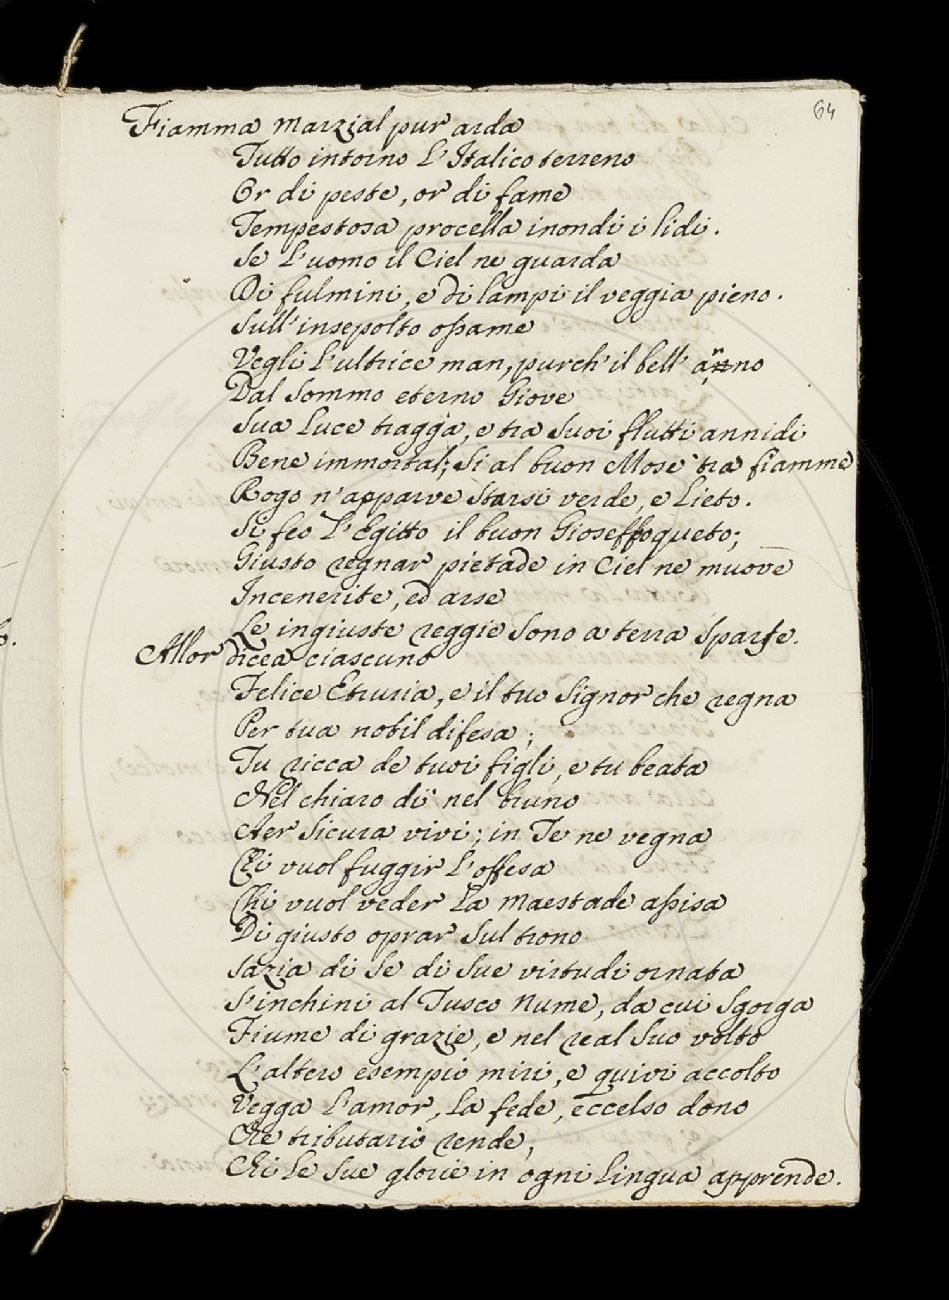 64
Fiamma Marzial pur arda
Tutto intorno L'Italico terreno
Or di peste, or di fame
Tempestosa procella inondi i lidi.
Se L'uomo il Ciel ne guarda
Di fulmini, e di lampi il veggia pieno.
Sull'insepolto ossame
Vegli L'ultrice man, purch'il bell'
Dal Sommo eterno Giove
Sua Luce tragga, e tra Suoi flutti annidi
Bene immortal; Si al buon Mosè tra fiamme
Rogo n'apparve Starsi verde, e Lieto.
Si feo L'Egitto il buon Gioseffo queto;
Giusto regnar pietade in Ciel ne muove
Incenerite, ed arse
Le ingiuste reggie Sono a terra Sparse.
Allor dicea ciascuno
Felice Etruria, e il tuo Signor che regna
Per tua nobil difesa;
Tu ricca de tuoi figli, e tu beata
Nel chiaro dì nel bruno
Aer Sicura vivi; in Te ne vegna
Chi vuol fuggir L'offesa
Chi vuol veder La Maestade assisa
Di giusto oprar Sul trono
Sazia di Se di Sue virtudi ornata
S'inchini al Tusco Nume, da cui Sgorga
Fiume di grazie, e nel real Suo volto
L'altero esempio miri, e quivi accolto
Vegga L'amor, La fede, eccelso dono
Che tributario rende,
Chi Le Sue glorie in ogni Lingua apprende.